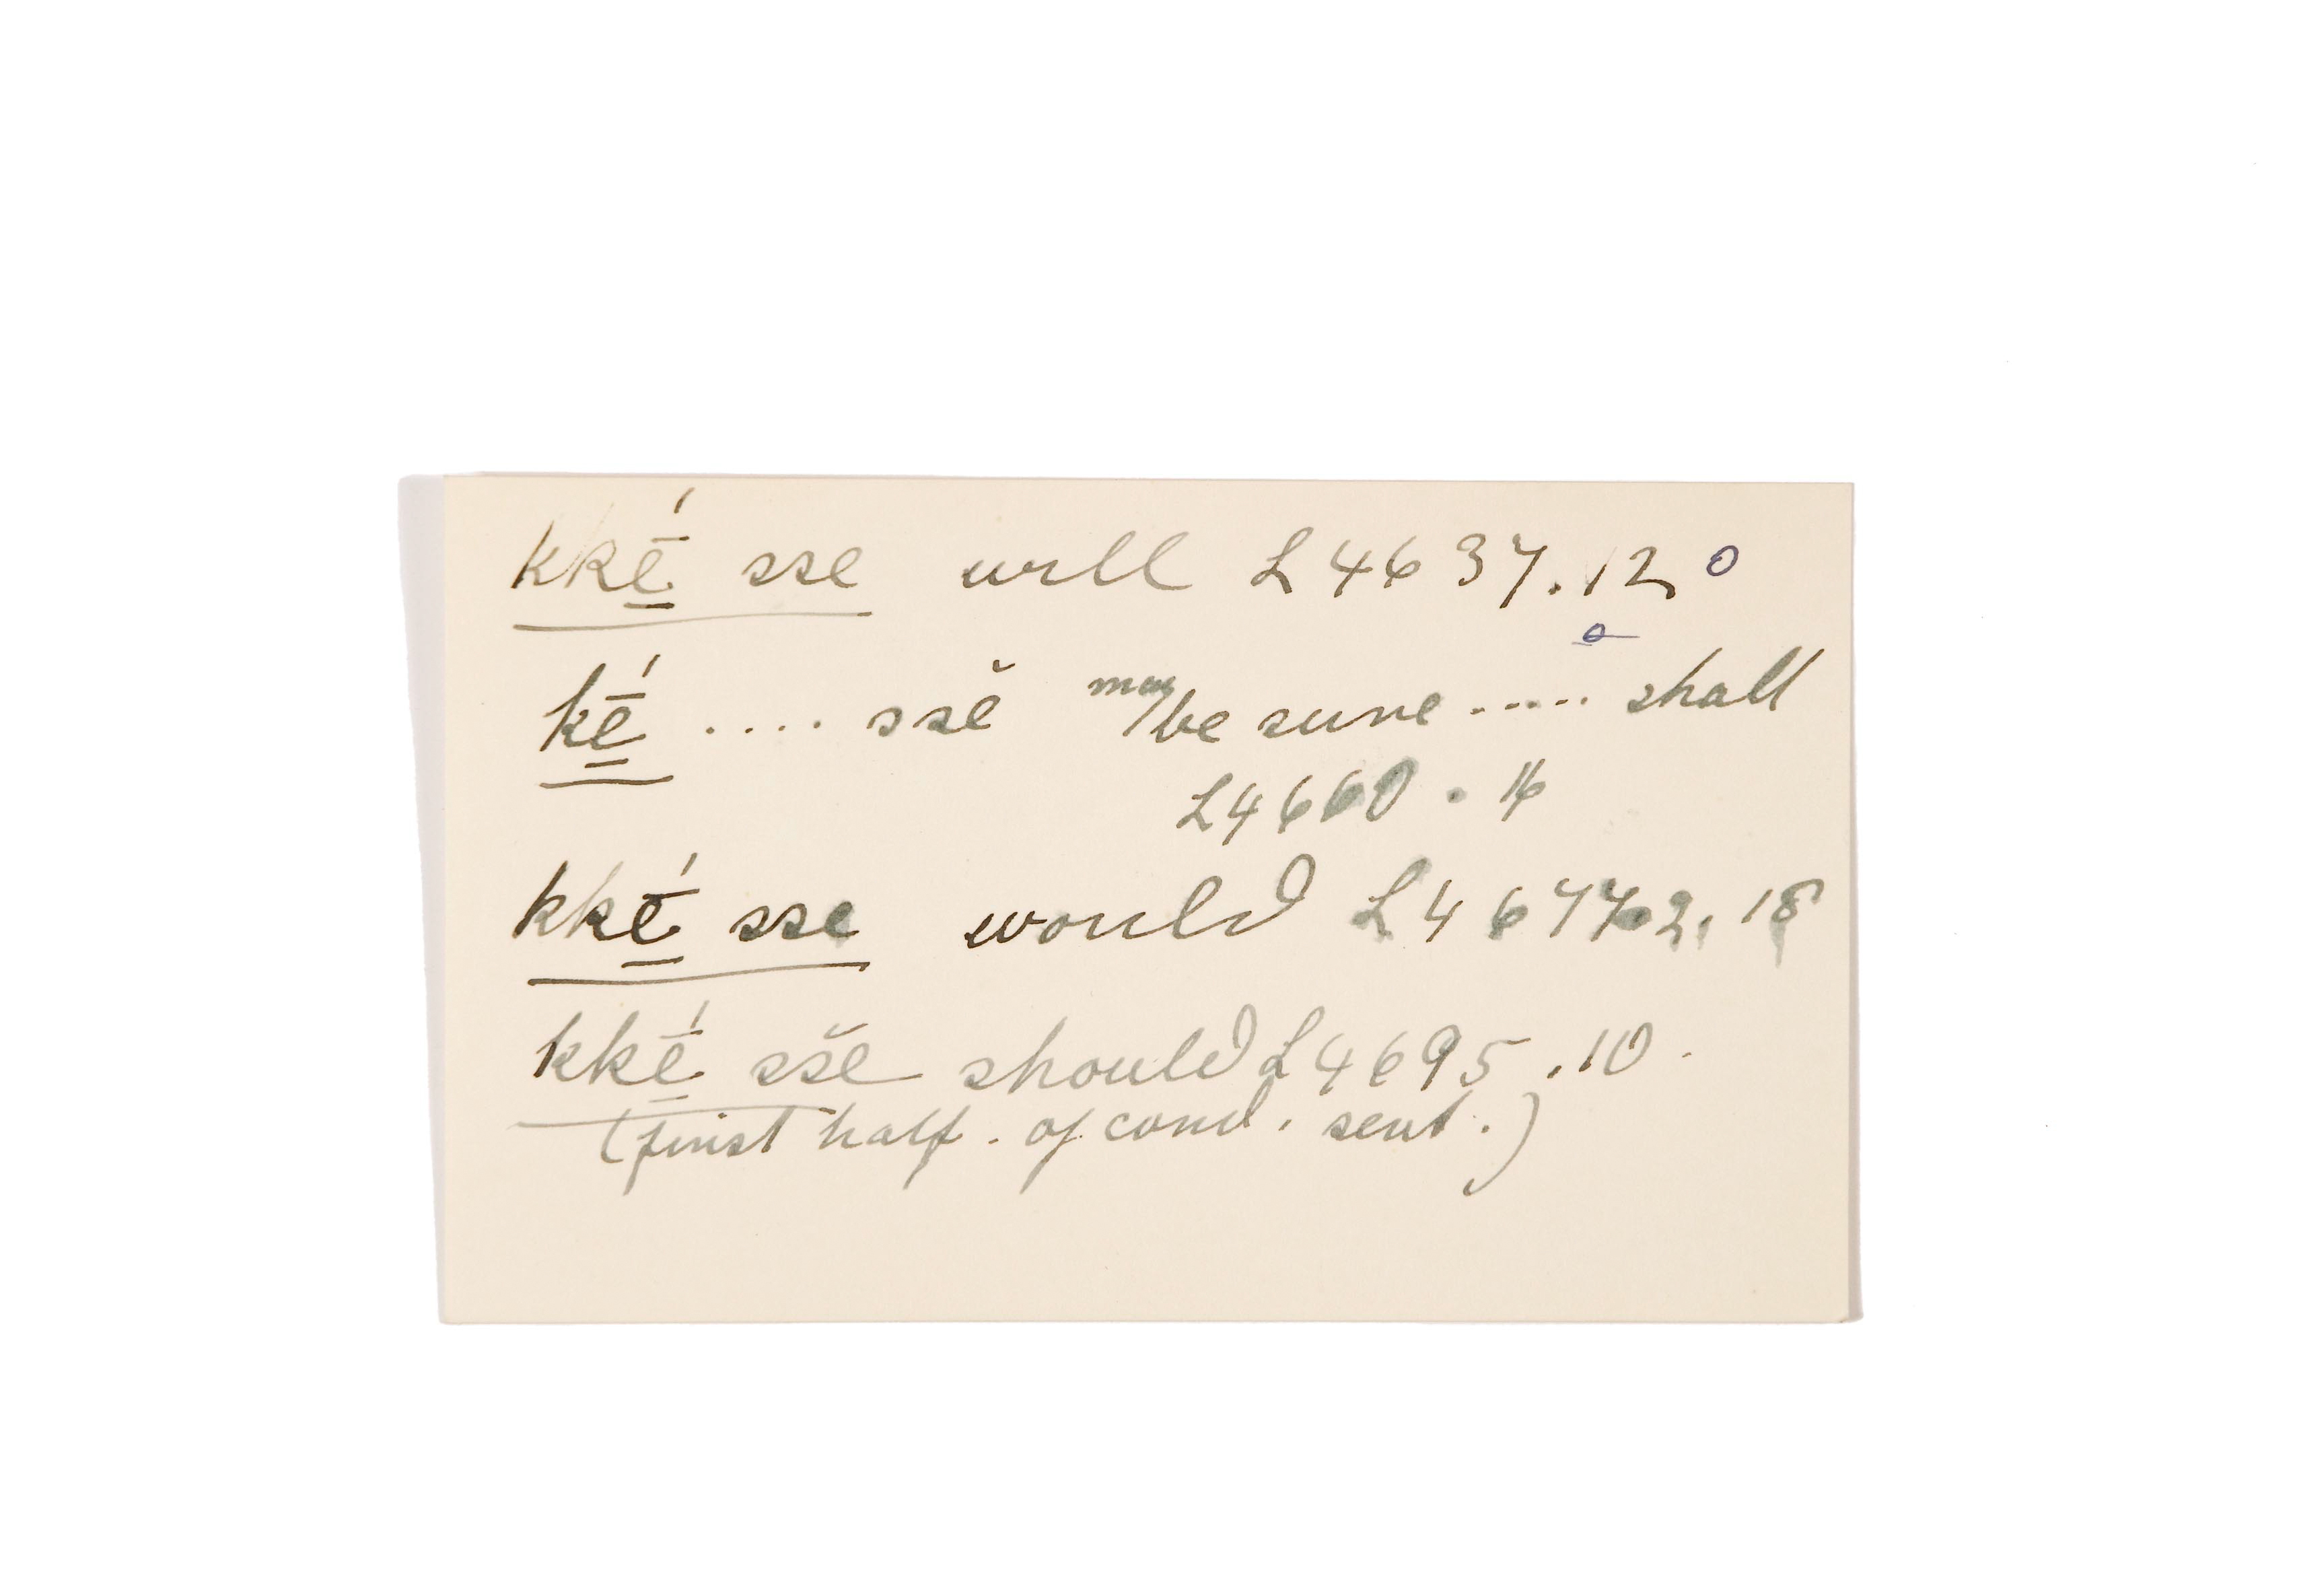 kkḗ̱ sse will L4637.12 0
kḗ̱ .... ssĕ may be sure ..... shall
L4660. 16
kkḗ̱ sse would 18
kkḗ̱ sse should L4695.10.
(first half. of cond. sent.)